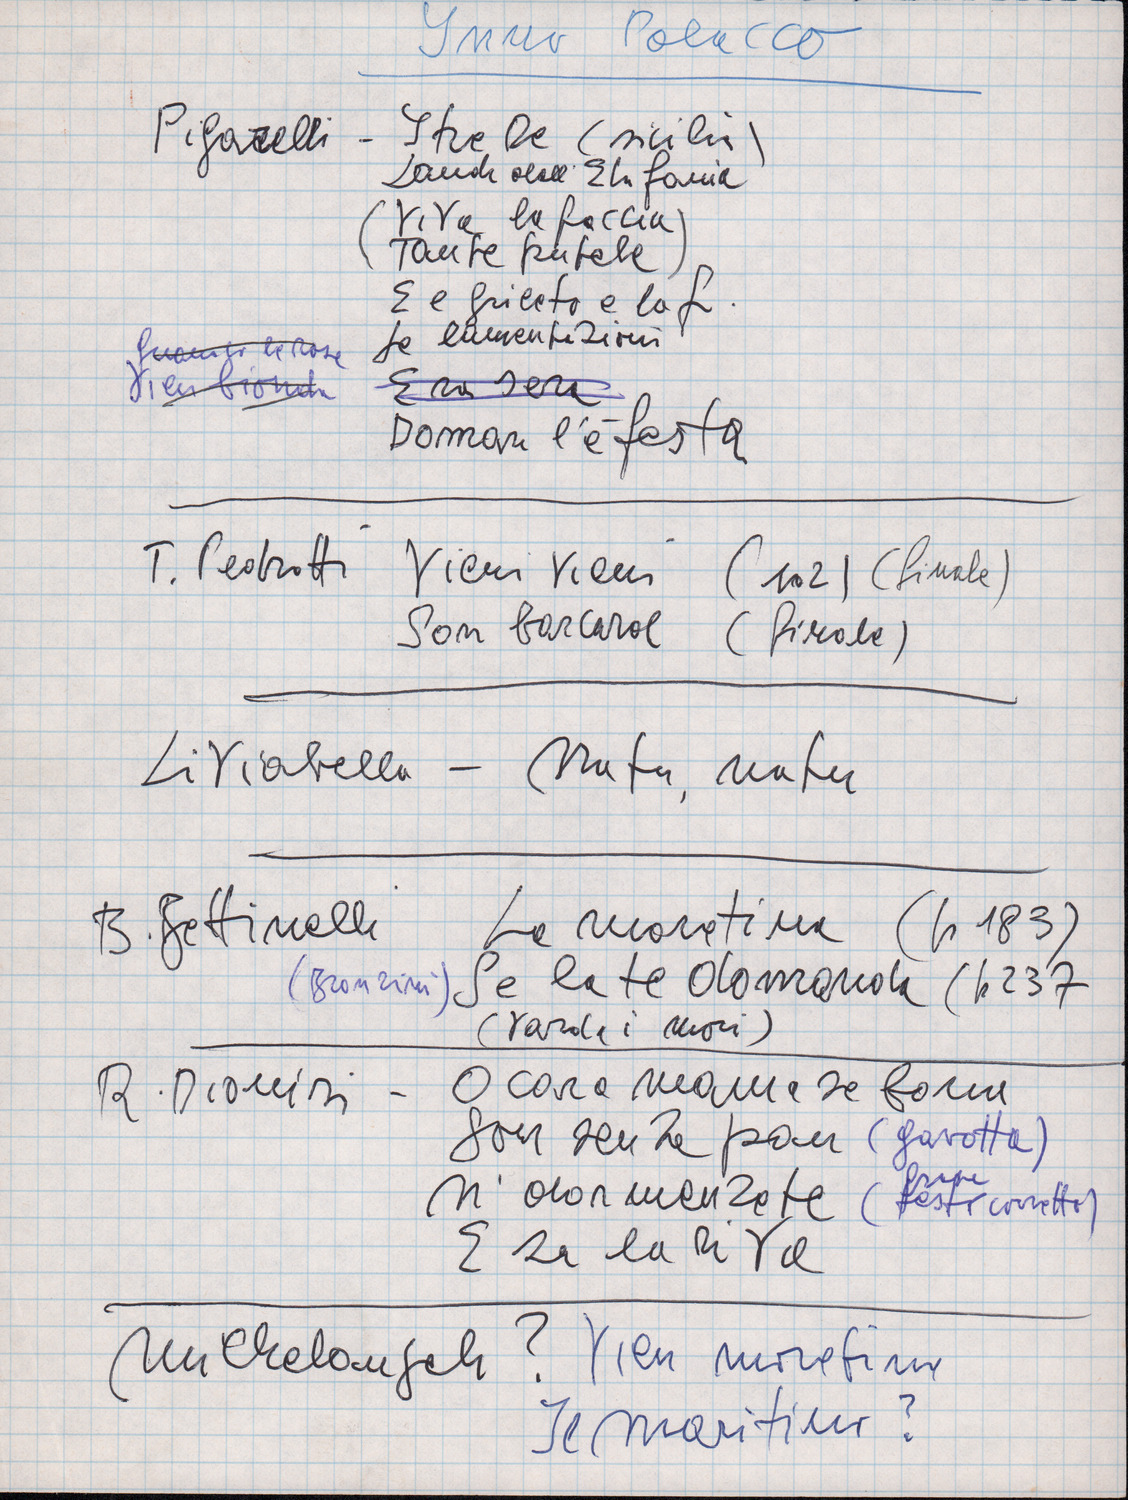 Inno Polacco
Pigarelli - I tre Re (sicilia)
Epifania
(Viva la faccia
Tante putele)
E e grileto e la f.
le lamentazioni
Vien bionda
Era sera
Doman l'è festa
T. Pedrotti Vieni Vieni (102) (finale)
Son barcarol (finale)
Liviabella - Matu, matu
B. Bettinelli La moretina (p 183)
(Bronzini) Se la te domanda (p 237
(varda i mori)
R. Dionisi - O cara mama se form
Son senza pan (gavotta)
N' dormenzete (testo corretto)
E sa la Riva
Michelangeli ? Vien moretina
Il maritino ?